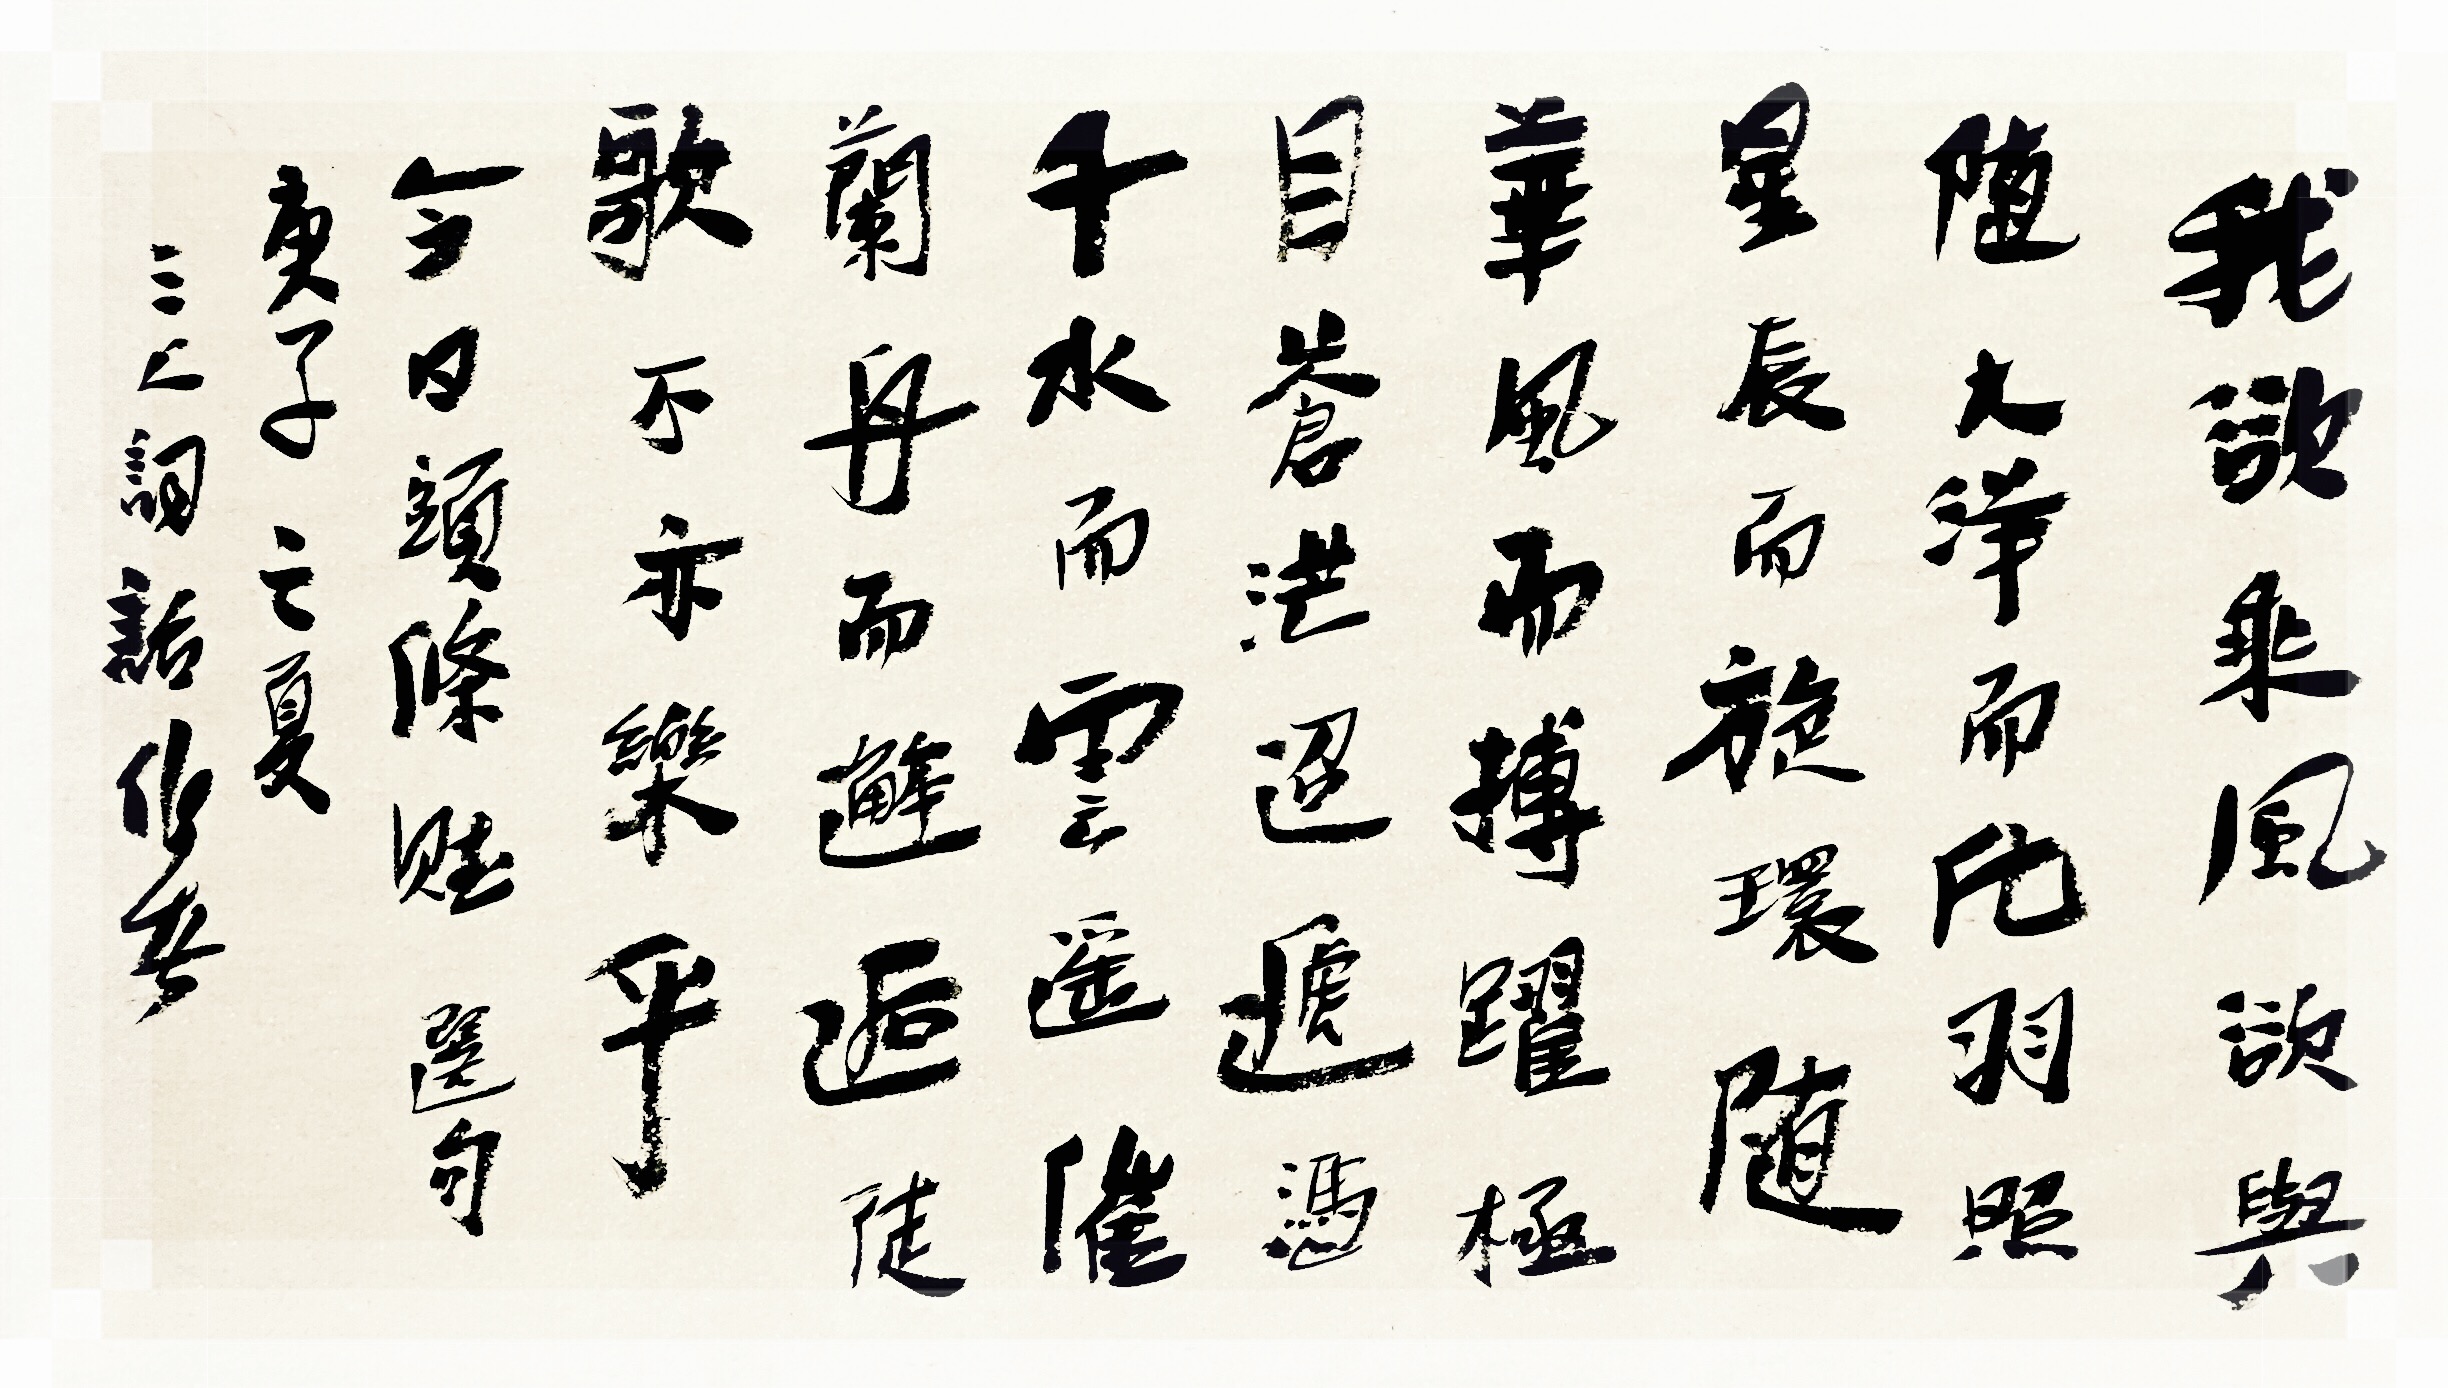 我欲乘風欲與
隨大洋而比羽照
星辰而旋環隨
華風而搏躍極
目蒼茫迢遞憑
千水而雲遥催
蘭舟而邂逅徒
歌不亦樂乎
今日頭條賦選句
庚子之夏
三上詞話作者